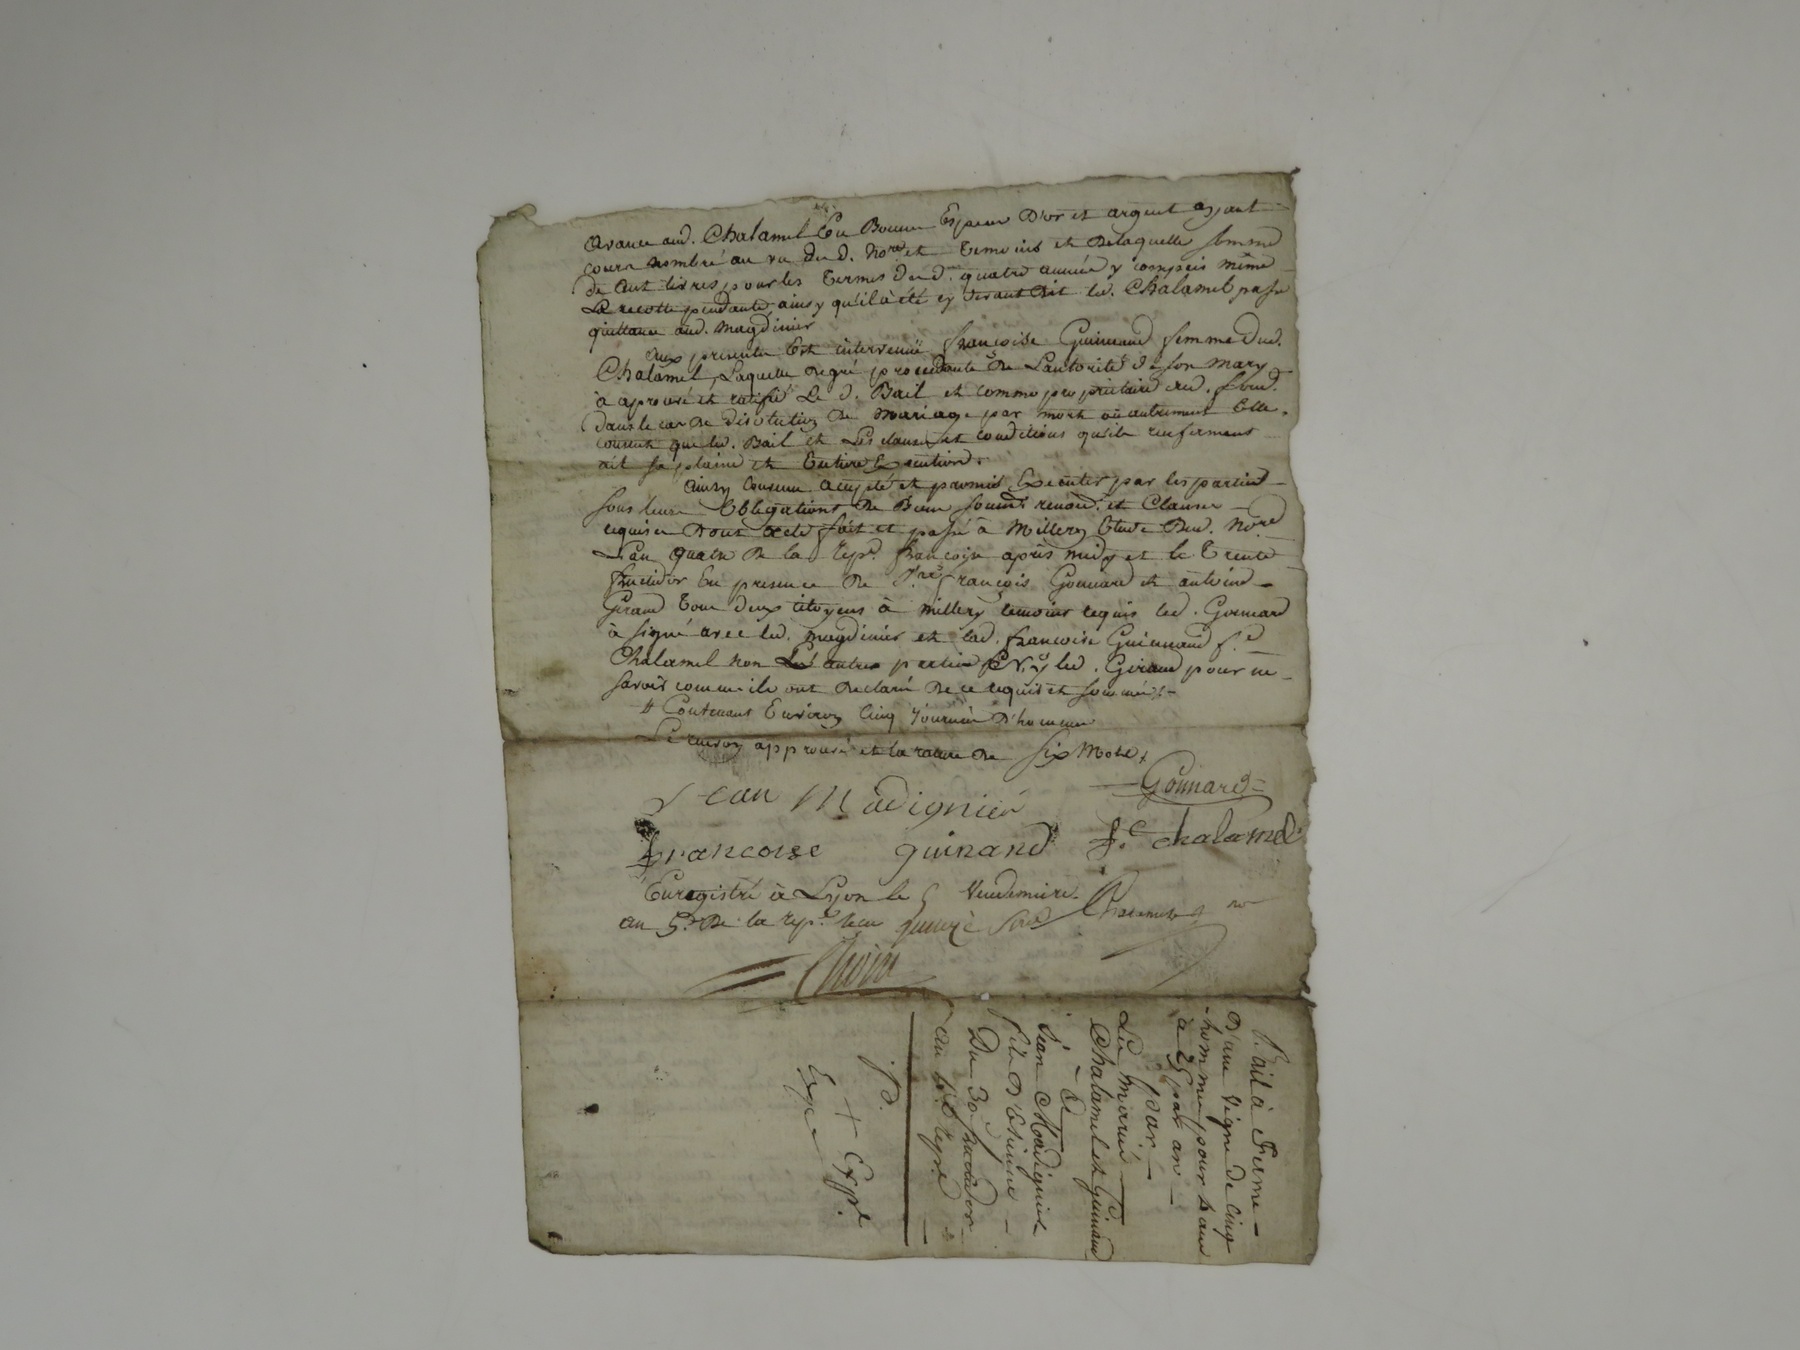 avance aud. Chalamel En Bonne Espece D'or et argent ayant
cours nombré au vu du d. no.re et temoins et Delaquelle somme
de Cent livres pour les termes dud. quatre année y compris même
La recolte pendante ainsy qu'il a été cy devant dit led. Chalamel passe
quittance aud. magdinier
aux presentes Est intervenüe françoise Guinand femme Dud.
Chalamel, Laquelle de gré procedante De L'autorité de son mary
à aprouvé et ratifié Le d. Bail et comme propriettaire dud. fond.
dans le cas De disolution De mariage par mort où autrement Elle
consent que led. Bail et Les clauses et conditions qu'il renferment
ait sa plaine et Entiere Execution.
ainsy convenu accepté et promis Executer par les parties
sous leurs obligations De Biens soumis. renonc. et Clauses
requises Dont acte fait et passé à Millery Etude Dud. No.re
L'an quatre De la rep.e françoise après midy et le trente
fructidor En presence De françois Gonnard et antoine
Giraud tous deux citoyens à millery temoins requis led. Gonnard
à signé avec led. magdinier et lad. françoise Guinnand f.e
Chalamel non Les autres parties led. Giraud pour ne
savoir comme ils ont declaré De ce requis et sommés
# Contenant Environ cinq journée d'hommes
Le renvoy approuvé et la rature De six mots
Gonnard
Jean Madignier
francoise guinand f.e chalamel
Enregistré à Lyon le 5 Vendemiere
an 5.e De la rep.e Reçu quinze sols
Bail à Ferme
D'une vigne de Cinq
hommée pour 4 ans
à 25 par an
par
Les Mariés
Chalamel et Guinand
à
Jean Madignier
fils D'Etienne
Du 30 fructidor
an 4.e rep.e
+ Exp.e